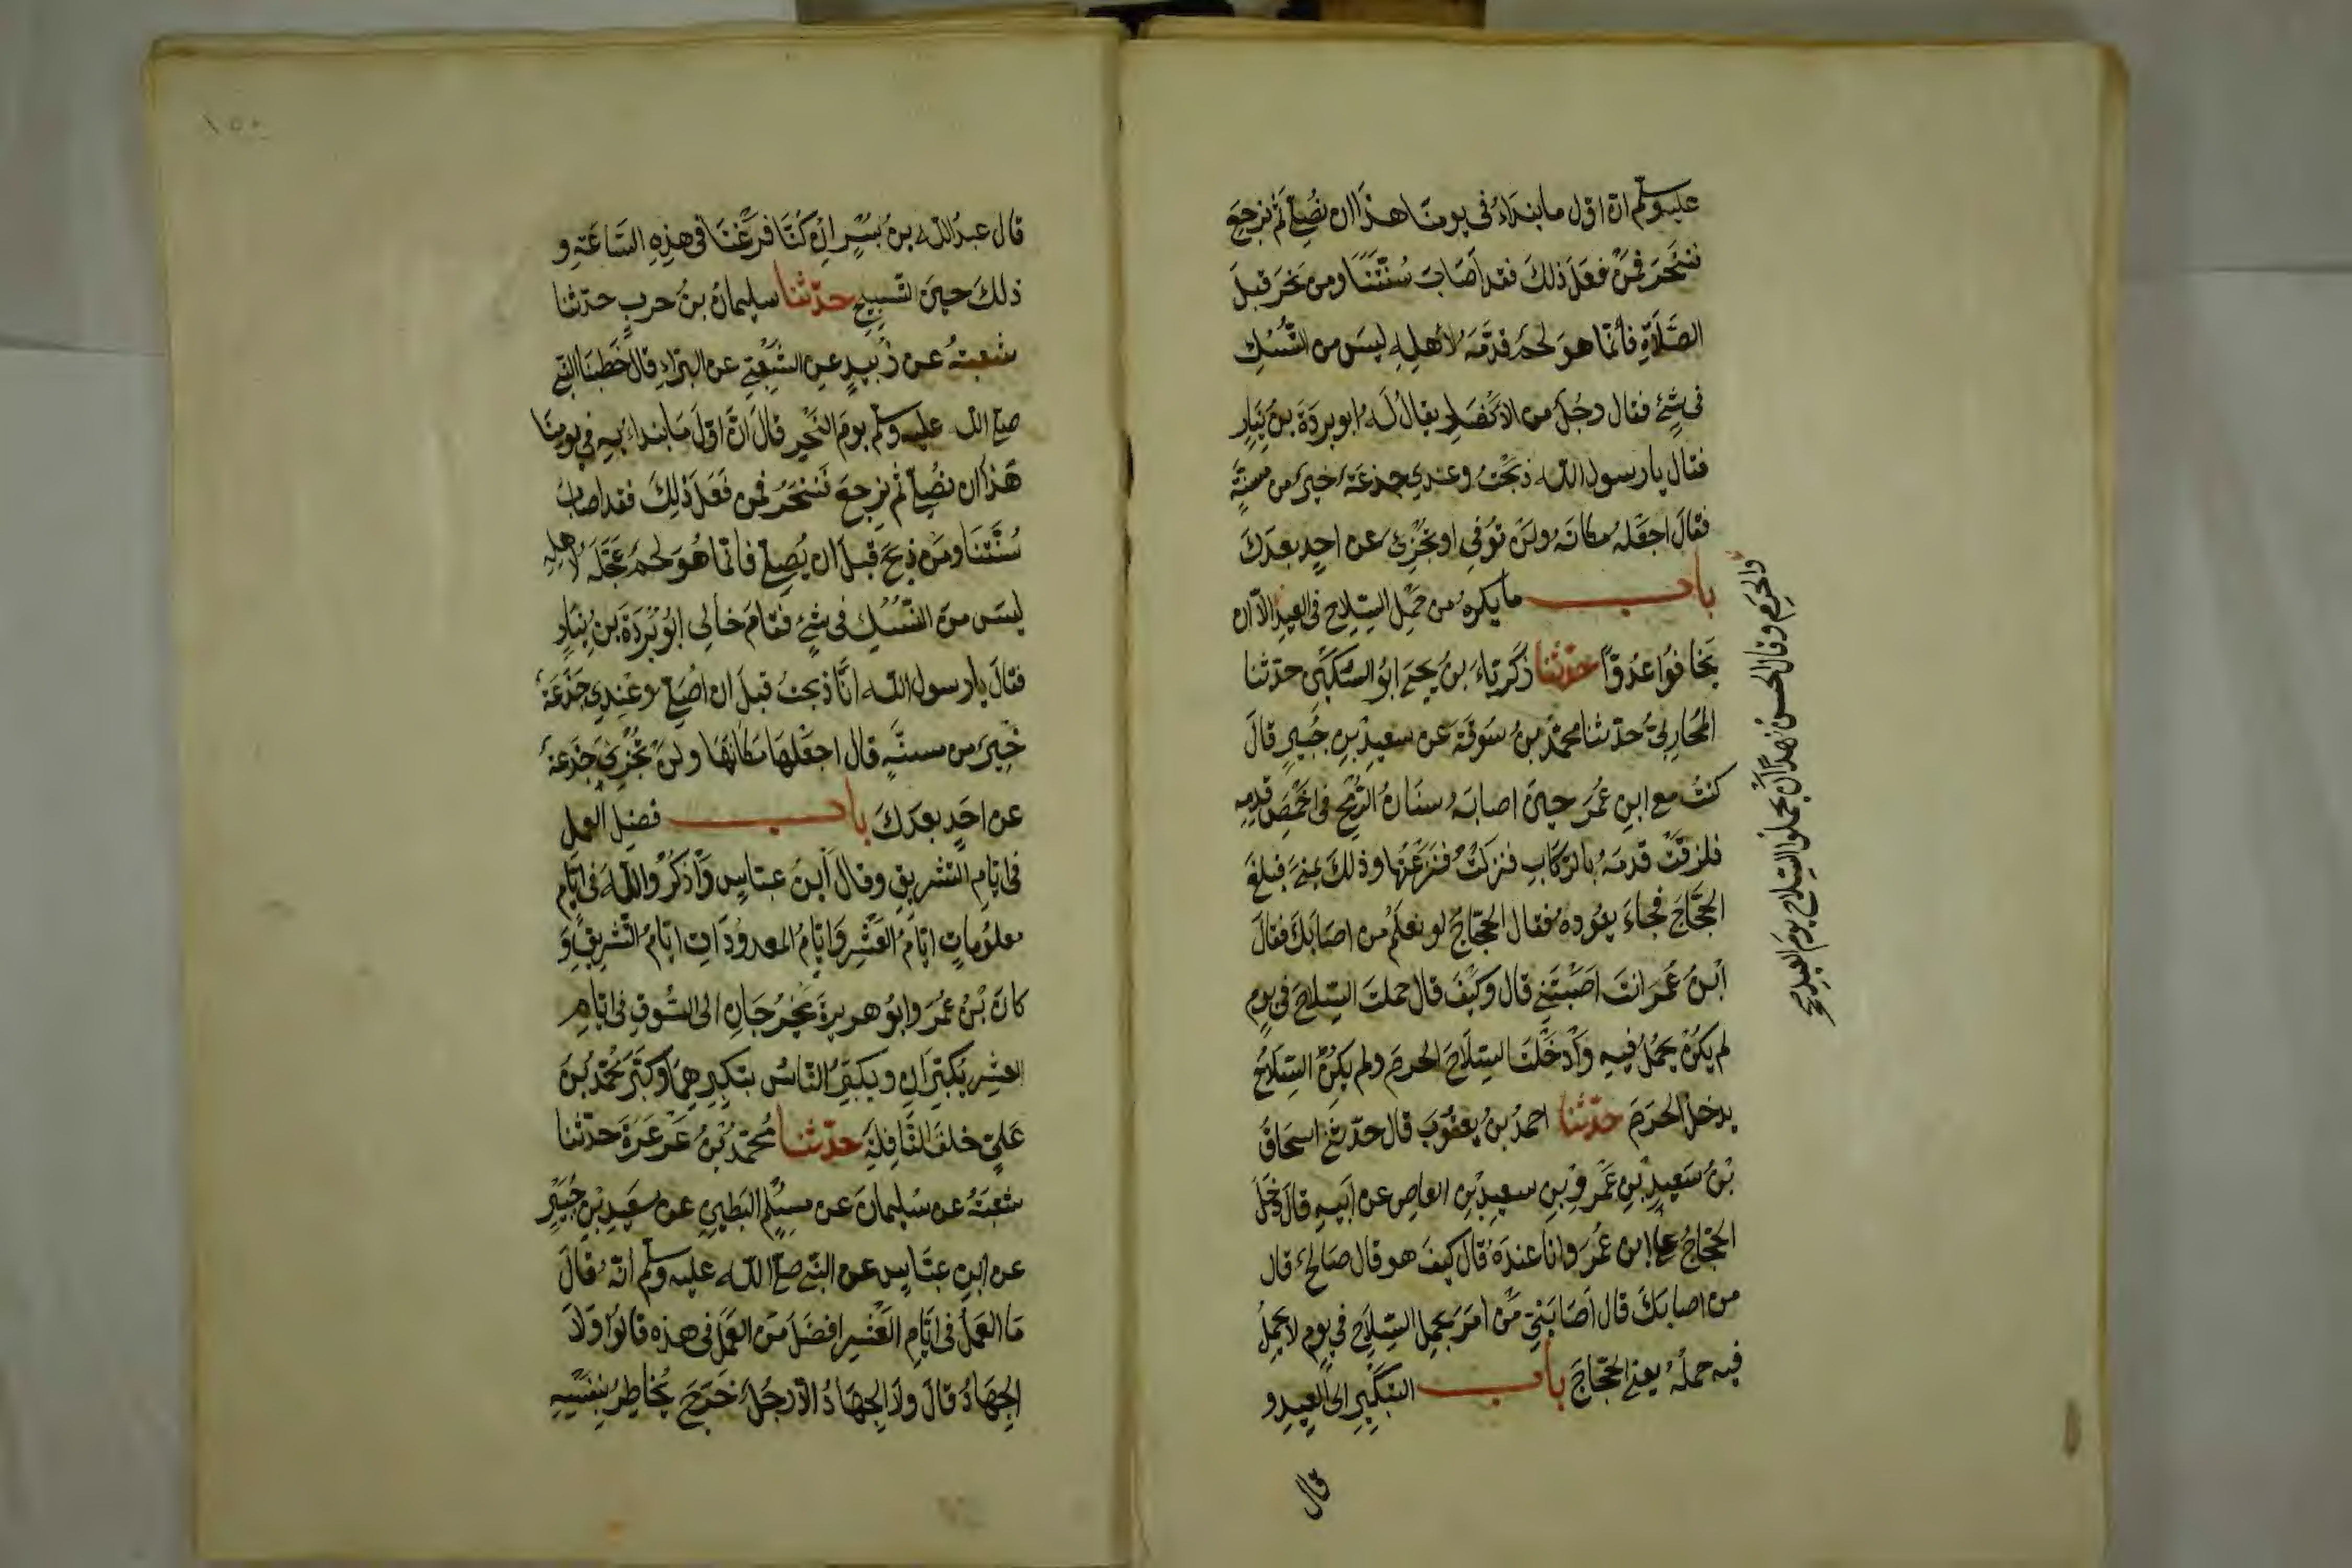 عليه وسلم ان اول ما نبداء في يومنا هذا ان نصلي ثم نرجع
فننحر فمن فعل ذلك فقد اصاب سنتنا ومن نحر قبل
الصلاة فانما هو لحم قدمه لأهله ليس من النسك
في شئ فقال رجل من الانصار يقال له ابو بردة بن نيار
فقال يا رسول الله ذبحت وعندي جذعة خير من مسنة
فقال اجعله مكانه ولن توفي او تجزئ عن احد بعدك
باب ما يكره من حمل السلاح في العيد الا ان
والحرم وقال الحسن نهوا ان يحملوا السلاح يوم العيد
يخافوا عدوا حدثنا زكرياء بن يحيى ابو السكين حدثنا
المحاربي حدثنا محمد بن سوقة عن سعيد بن جبير قال
كنت مع ابن عمر حين اصابه سنان الرمح في اخمص قدمه
فلزقت قدمه بالركاب فنزلت فنزعتها وذلك بمنى فبلغ
الحجاج فجاء يعوده فقال الحجاج لو نعلم من اصابك فقال
ابن عمر انت اصبتني قال وكيف قال حملت السلاح في يوم
لم يكن يحمل فيه وأدخلت السلاح الحرم ولم يكن السلاح
يدخل الحرم حدثنا احمد بن يعقوب قال حدثني اسحاق
بن سعيد بن عمرو بن سعيد بن العاص عن أبيه قال دخل
الحجاج على ابن عمر وانا عنده قال كيف هو قال صالح قال
من اصابك قال أصابني من امر بحمل السلاح في يوم لا يحل
فيه حمله يعني الحجاج باب التبكير الى العيد و
قال
١٥٠
قال عبد الله بن بسر ان كنا فرغنا في هذه الساعة و
ذلك حين التسبيح حدثنا سليمان بن حرب حدثنا
شعبة عن زبيد عن الشعبي عن البراء قال خطبنا النبي
صلى الله عليه وسلم يوم النحر قال ان اول ما نبداء به في يومنا
هذا ان نصلي ثم نرجع فننحر فمن فعل ذلك فقد اصاب
سنتنا ومن ذبح قبل ان يصلي فانما هو لحم عجله لاهله
ليس من النسك في شئ فقام خالي ابو بردة بن نيار
فقال يا رسول الله انا ذبحت قبل ان اصلي وعندي جذعة
خير من مسنة قال اجعلها مكانها ولن تجزي جذعة
عن احد بعدك باب فضل العمل
في ايام التشريق وقال ابن عباس واذكروا الله في ايام
معلومات ايام العشر وايام المعدودات ايام التشريق و
كان بن عمر وابو هريرة يخرجان الى السوق في ايام
العشر يكبران ويكبر الناس بتكبيرهما وكبر محمد بن
علي خلف النافلة حدثنا محمد بن عرعرة حدثنا
شعبة عن سليمان عن مسلم البطين عن سعيد بن جبير
عن ابن عباس عن النبي صلى الله عليه وسلم انه قال
ما العمل في ايام العشر افضل من العمل في هذه قالوا ولا
الجهاد قال ولا الجهاد الا رجل خرج يخاطر بنفسه